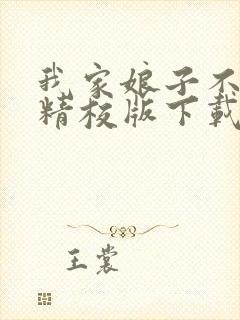 我家娘子不
精校版下载
王裳